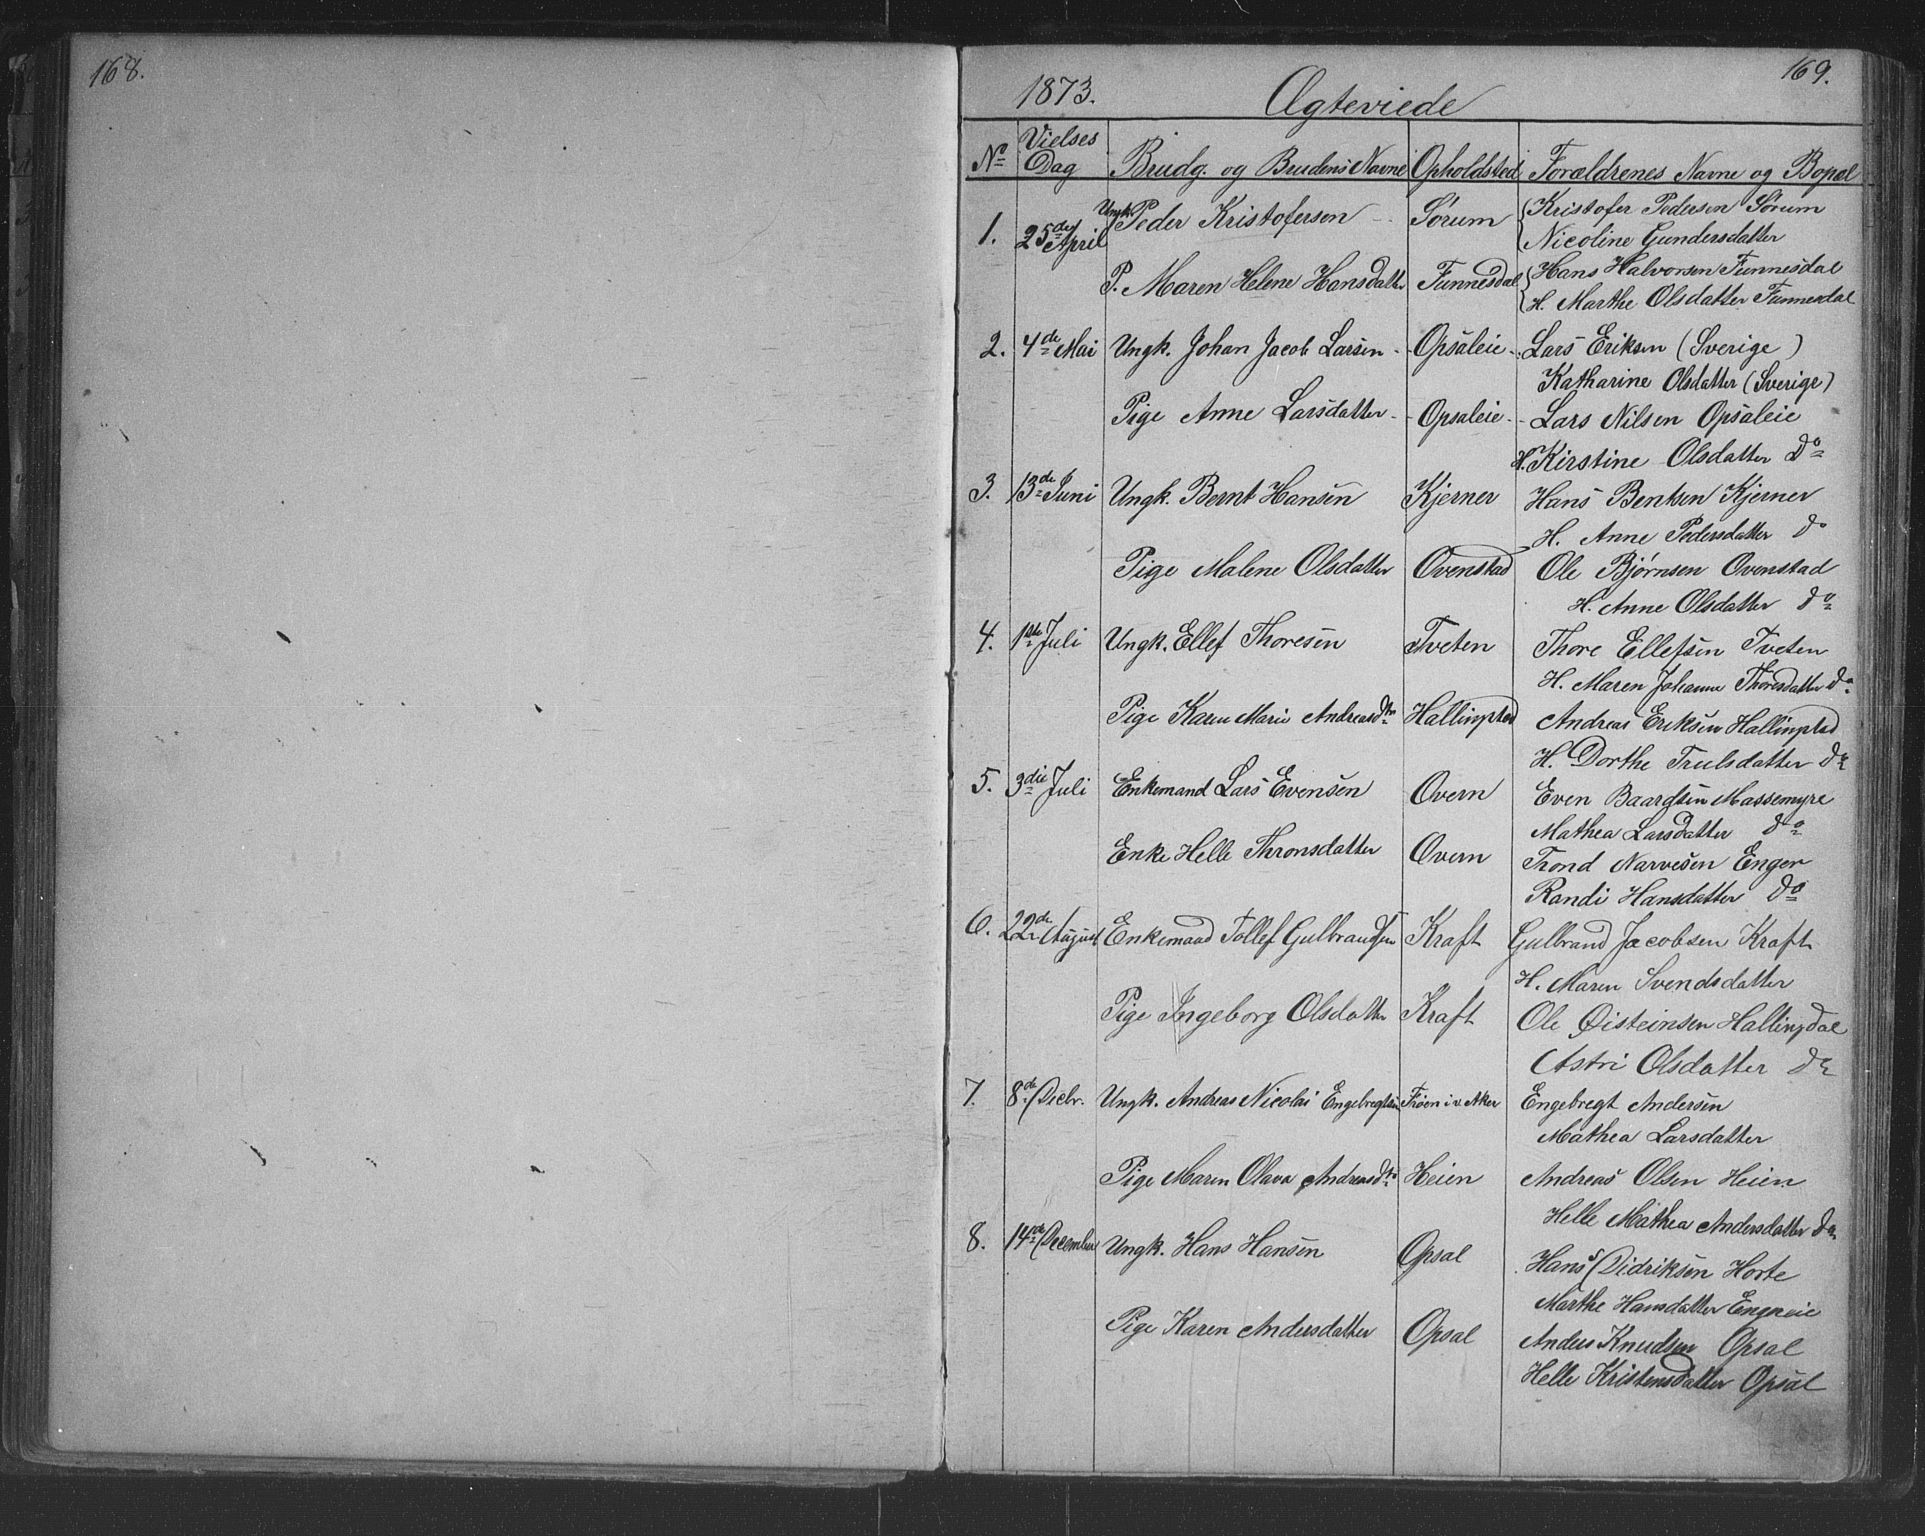 168.
169.
1873. Ægteviede
No Vielses Dag Brudg. og Brudens Navne Opholdsted Forældrenes Navne og Bopæl
1. 25de April Ungk. Peder Kristofersen Sørum Kristofer Pedersen Sørum
Nicoline Gundersdatter
P. Maren Helene Hansdatter Funnesdal Hans Halvorsen Funnesdal
H. Marthe Olsdatter Funnesdal
2. 4de Mai Ungk. Johan Jacob Larsen - Opsaleie - Lars Eriksen (Sverige)
Katharine Olsdatter (Sverige)
Pige Anne Larsdatter - Opsaleie - Lars Nilsen Opsaleie
H. Kirstine Olsdatter Do
3. 13de Juni Ungk. Bernt Hansen Kjerner Hans Bentsen Kjerner
H. Anne Pedersdatter do
Pige Malene Olsdatter Ovenstad Ole Bjørnsen Ovenstad
H. Anne Olsdatter do
4. 1ste Juli Ungk. Ellef Thoresen Tveten Thore Ellefsen Tveten
H. Maren Johanne Thoresdatter do
Pige Karen Marie Andreasdtr Hallingstad Andreas Eriksen Hallingstad
H. Dorthe Trulsdatter do
5. 3die Juli Enkemand Lars Evensen Overn Even Baardsen Massemyre
Mathea Larsdatter do
Enke Helle Thronsdatter Overn Trond Narvesen Enger
Randi Hansdatter do
6. 22de August Enkemand Tollef Gulbrandsen Kraft Gulbrand Jacobsen Kraft
H. Maren Svendsdatter
Pige Ingeborg Olsdatter Kraft Ole Øisteinsen Hallingdal
Astri Olsdatter do
7. 8de Decbr. Ungk. Andreas Nicolai Engebregtsen Frøen i v. Aker Engebregt Andersen
Mathea Larsdatter
Pige Maren Olava Andreasdtr Heien Andreas Olsen Heien
Helle Mathea Andersdatter do
8. 14de December Ungk. Hans Hansen Opsal Hans Didriksen Horte
Marthe Hansdatter Engneie
Pige Karen Andersdatter Opsal Anders Knudsen Opsal
Helle Kristensdatter Opsal